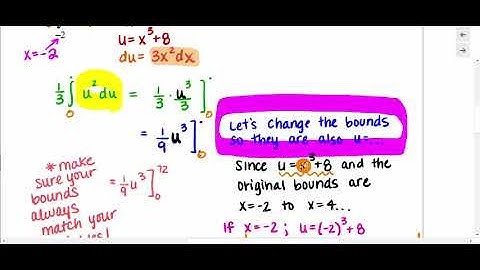 -2
x=-2
u=x³+8
du= 3x²dx
1/3 ∫ u²du = 1/3 · u³/3 ]
0 0
= 1/9 u³ ]
0
Let's change the bounds
so they are also u=...
Since u=x³+8 and the
original bounds are
x=-2 to x=4...
If x=-2 ; u=(-2)³+8
* make
sure your
bounds
always
match your
= 1/9 u³ ]₀⁷²